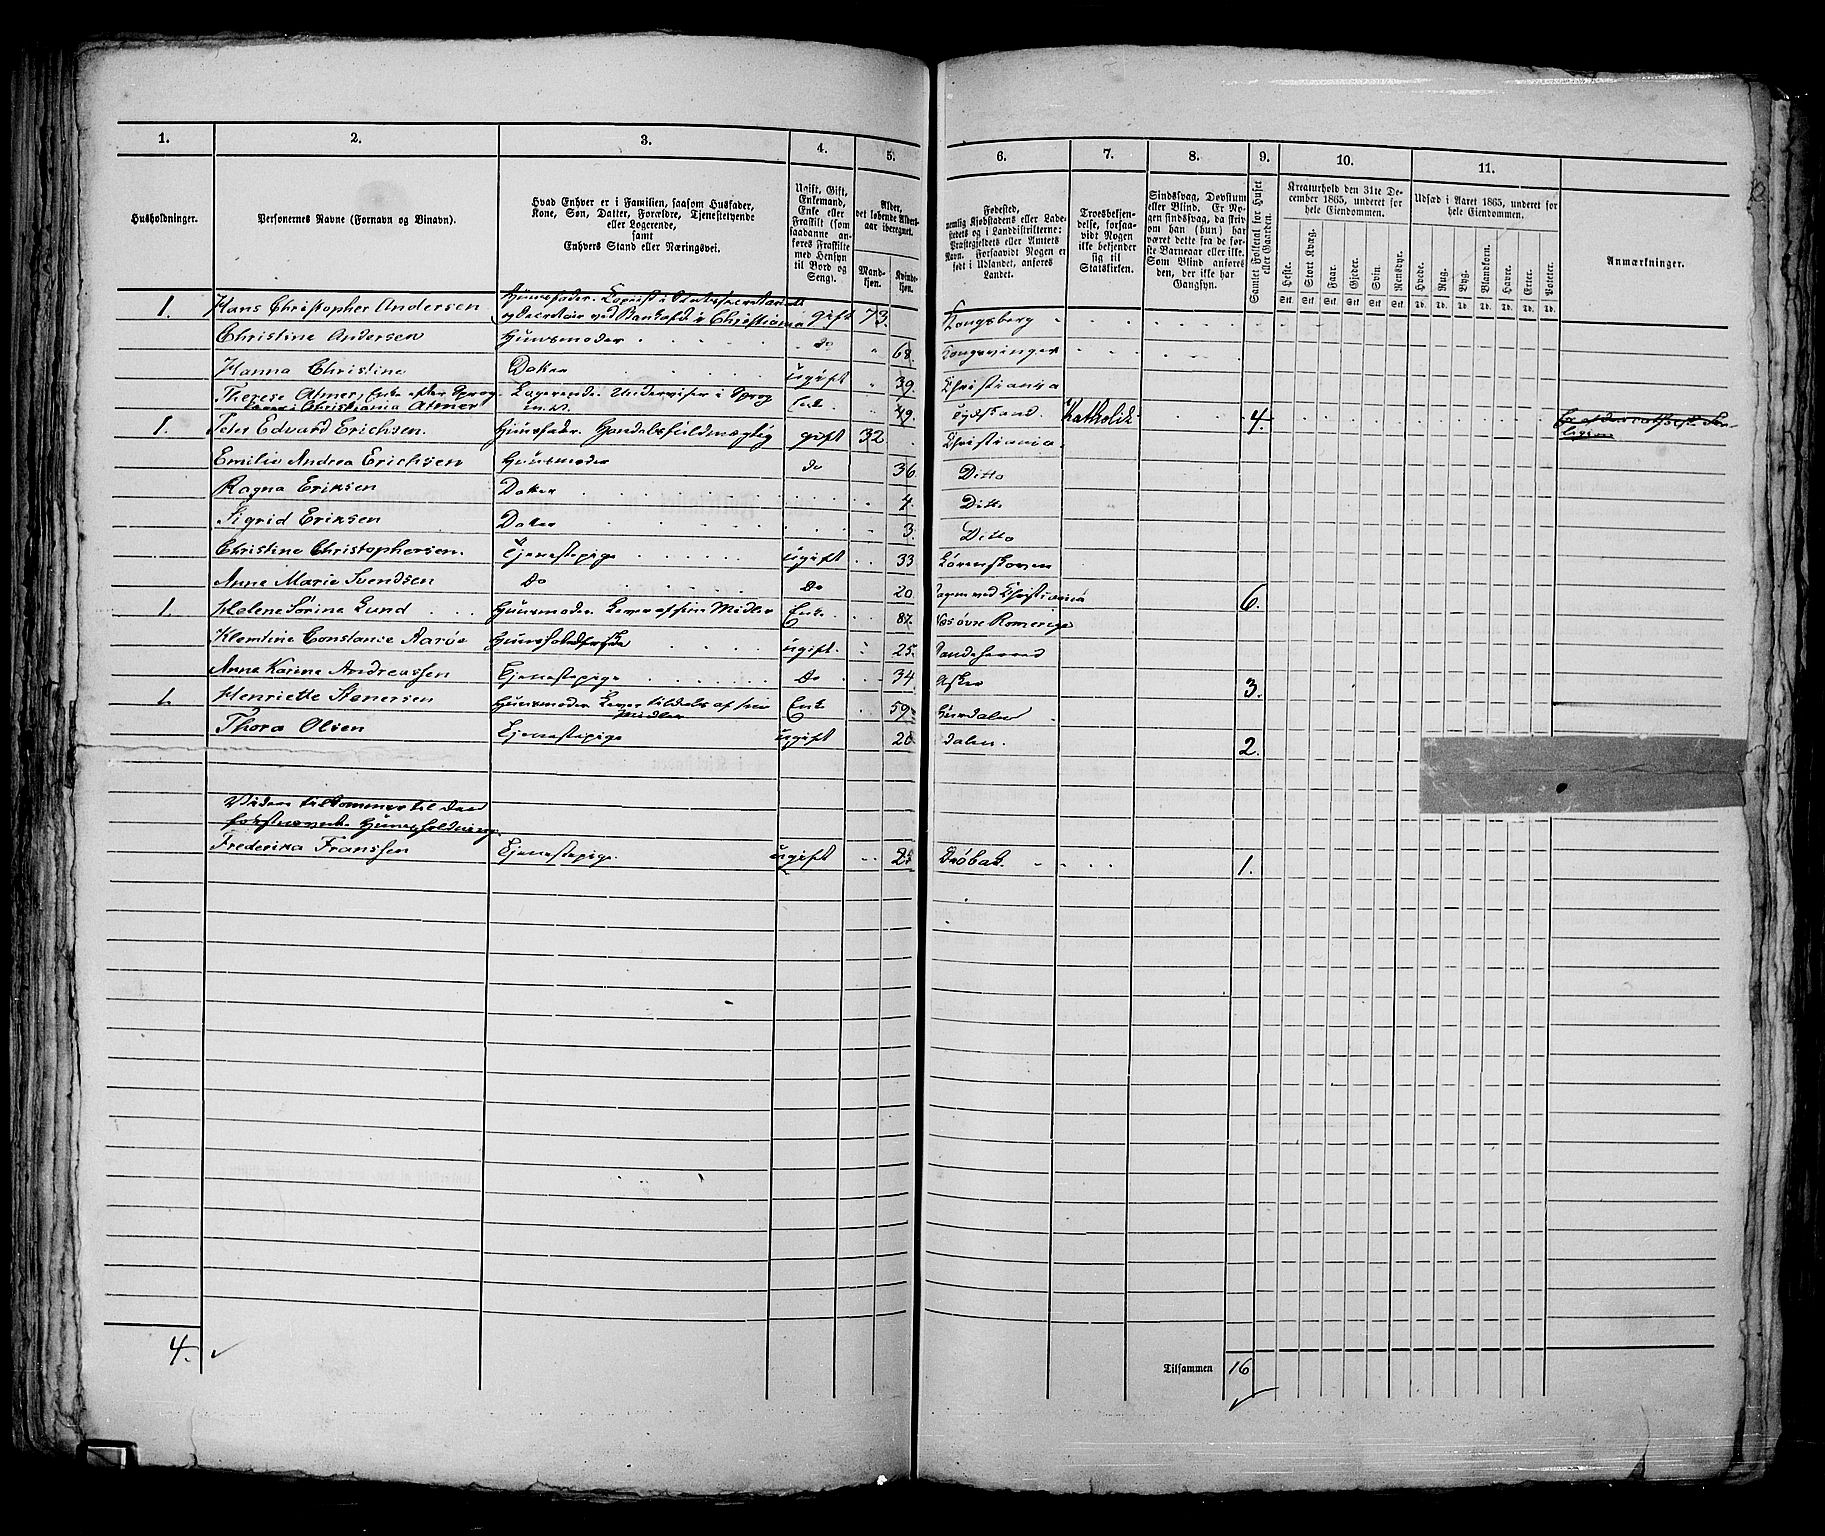 1. 2. 3. 4. 5. 6. 7. 8. 9. 10. 11.
Husholdninger.
Personernes Navne (Fornavn og Binavn).
Hvad Enhver er i Familien, saasom Husfader,
Kone, Søn, Datter, Forældre, Tjenestetyende
eller Logerende,
samt
Enhvers Stand eller Næringsvei.
Ugift, Gift,
Enkemand,
Enke eller
Fraskilt (som
saadanne an-
føres Fraskilte
med Hensyn
til Bord og
Seng).
Alder,
det løbende Alders-
aar iberegnet.
Mand-
kjøn.
Kvinde-
kjøn.
Fødested,
nemlig Kjøbstadens eller Lade-
stedets og i Landdistrikterne:
Præstegjeldets eller Amtets
Navn. Forsaavidt Nogen er
født i Udlandet, anføres
Landet.
Troesbekjen-
delse, forsaa-
vidt Nogen
ikke bekjender
sig til
Statskirken.
Sindssvag, Døvstum
eller Blind. Er No-
gen sindssvag, da skriv
om han (hun) har
været dette fra de før-
ste Barneaar eller ikke.
Som Blind anføres
den, der ikke har
Gangsyn.
Samlet Folketal for Huset
eller Gaarden.
Kreaturhold den 31te De-
cember 1865, underet for
hele Eiendommen.
Heste. Stort Kvæg. Faar. Gjeder. Svin. Rensdyr.
Stk. Stk. Stk. Stk. Stk. Stk.
Udsæd i Aaret 1865, underet for
hele Eiendommen.
Hvede. Rug. Byg. Blandkorn. Havre. Erter. Poteter.
Td. Td. Td. Td. Td. Td. Td.
Anmærkninger.
1. Hans Christopher Andersen Huusfader. gift 73. Kongsberg
i Christiania
Christine Andersen Huusmoder do 68. Kongsvinger
Hanna Christine Datter ugift 39. Christiania
Therese Atmer, Enke efter Sprog Logerende Underviser i Sprog Enke 49. Tydskland. Katholik 4.
lærer i Christiania Atmer
1. Peter Edvard Erichsen. Huusfader. Handelsfuldmægtig gift 32 Christiania
Emilie Andrea Erichsen Huusmoder do 36 Ditto
Ragna Eriksen Datter 4. Ditto
Sigrid Eriksen Datter 3. Ditto
Christine Christophersen. Tjenestepige ugift 33 Lørenskoven
Anne Marie Svendsen Do Do 20 ved Christiania 6.
1. Helene Sørine Lund Huusmoder. Lever af sine Midler Enke 87. Næs øvre Romerige
Klemtine Constance Aarøe ugift. 25. Sandeherred
Anne Karine Andreassen Tjenestepige Do 34 Asker 3.
1. Henriette Stenersen Huusmoder Lever tildels af sine Enke 59 Hurdalen
Midler
Thora Olsen Tjenestepige ugift 20 2.
Videre tilkommer til den
førstnævnte Huusholdning
Frederika Franssen Tjenestepige. ugift 25 Drøbak. 1.
4.
Tilsammen 16